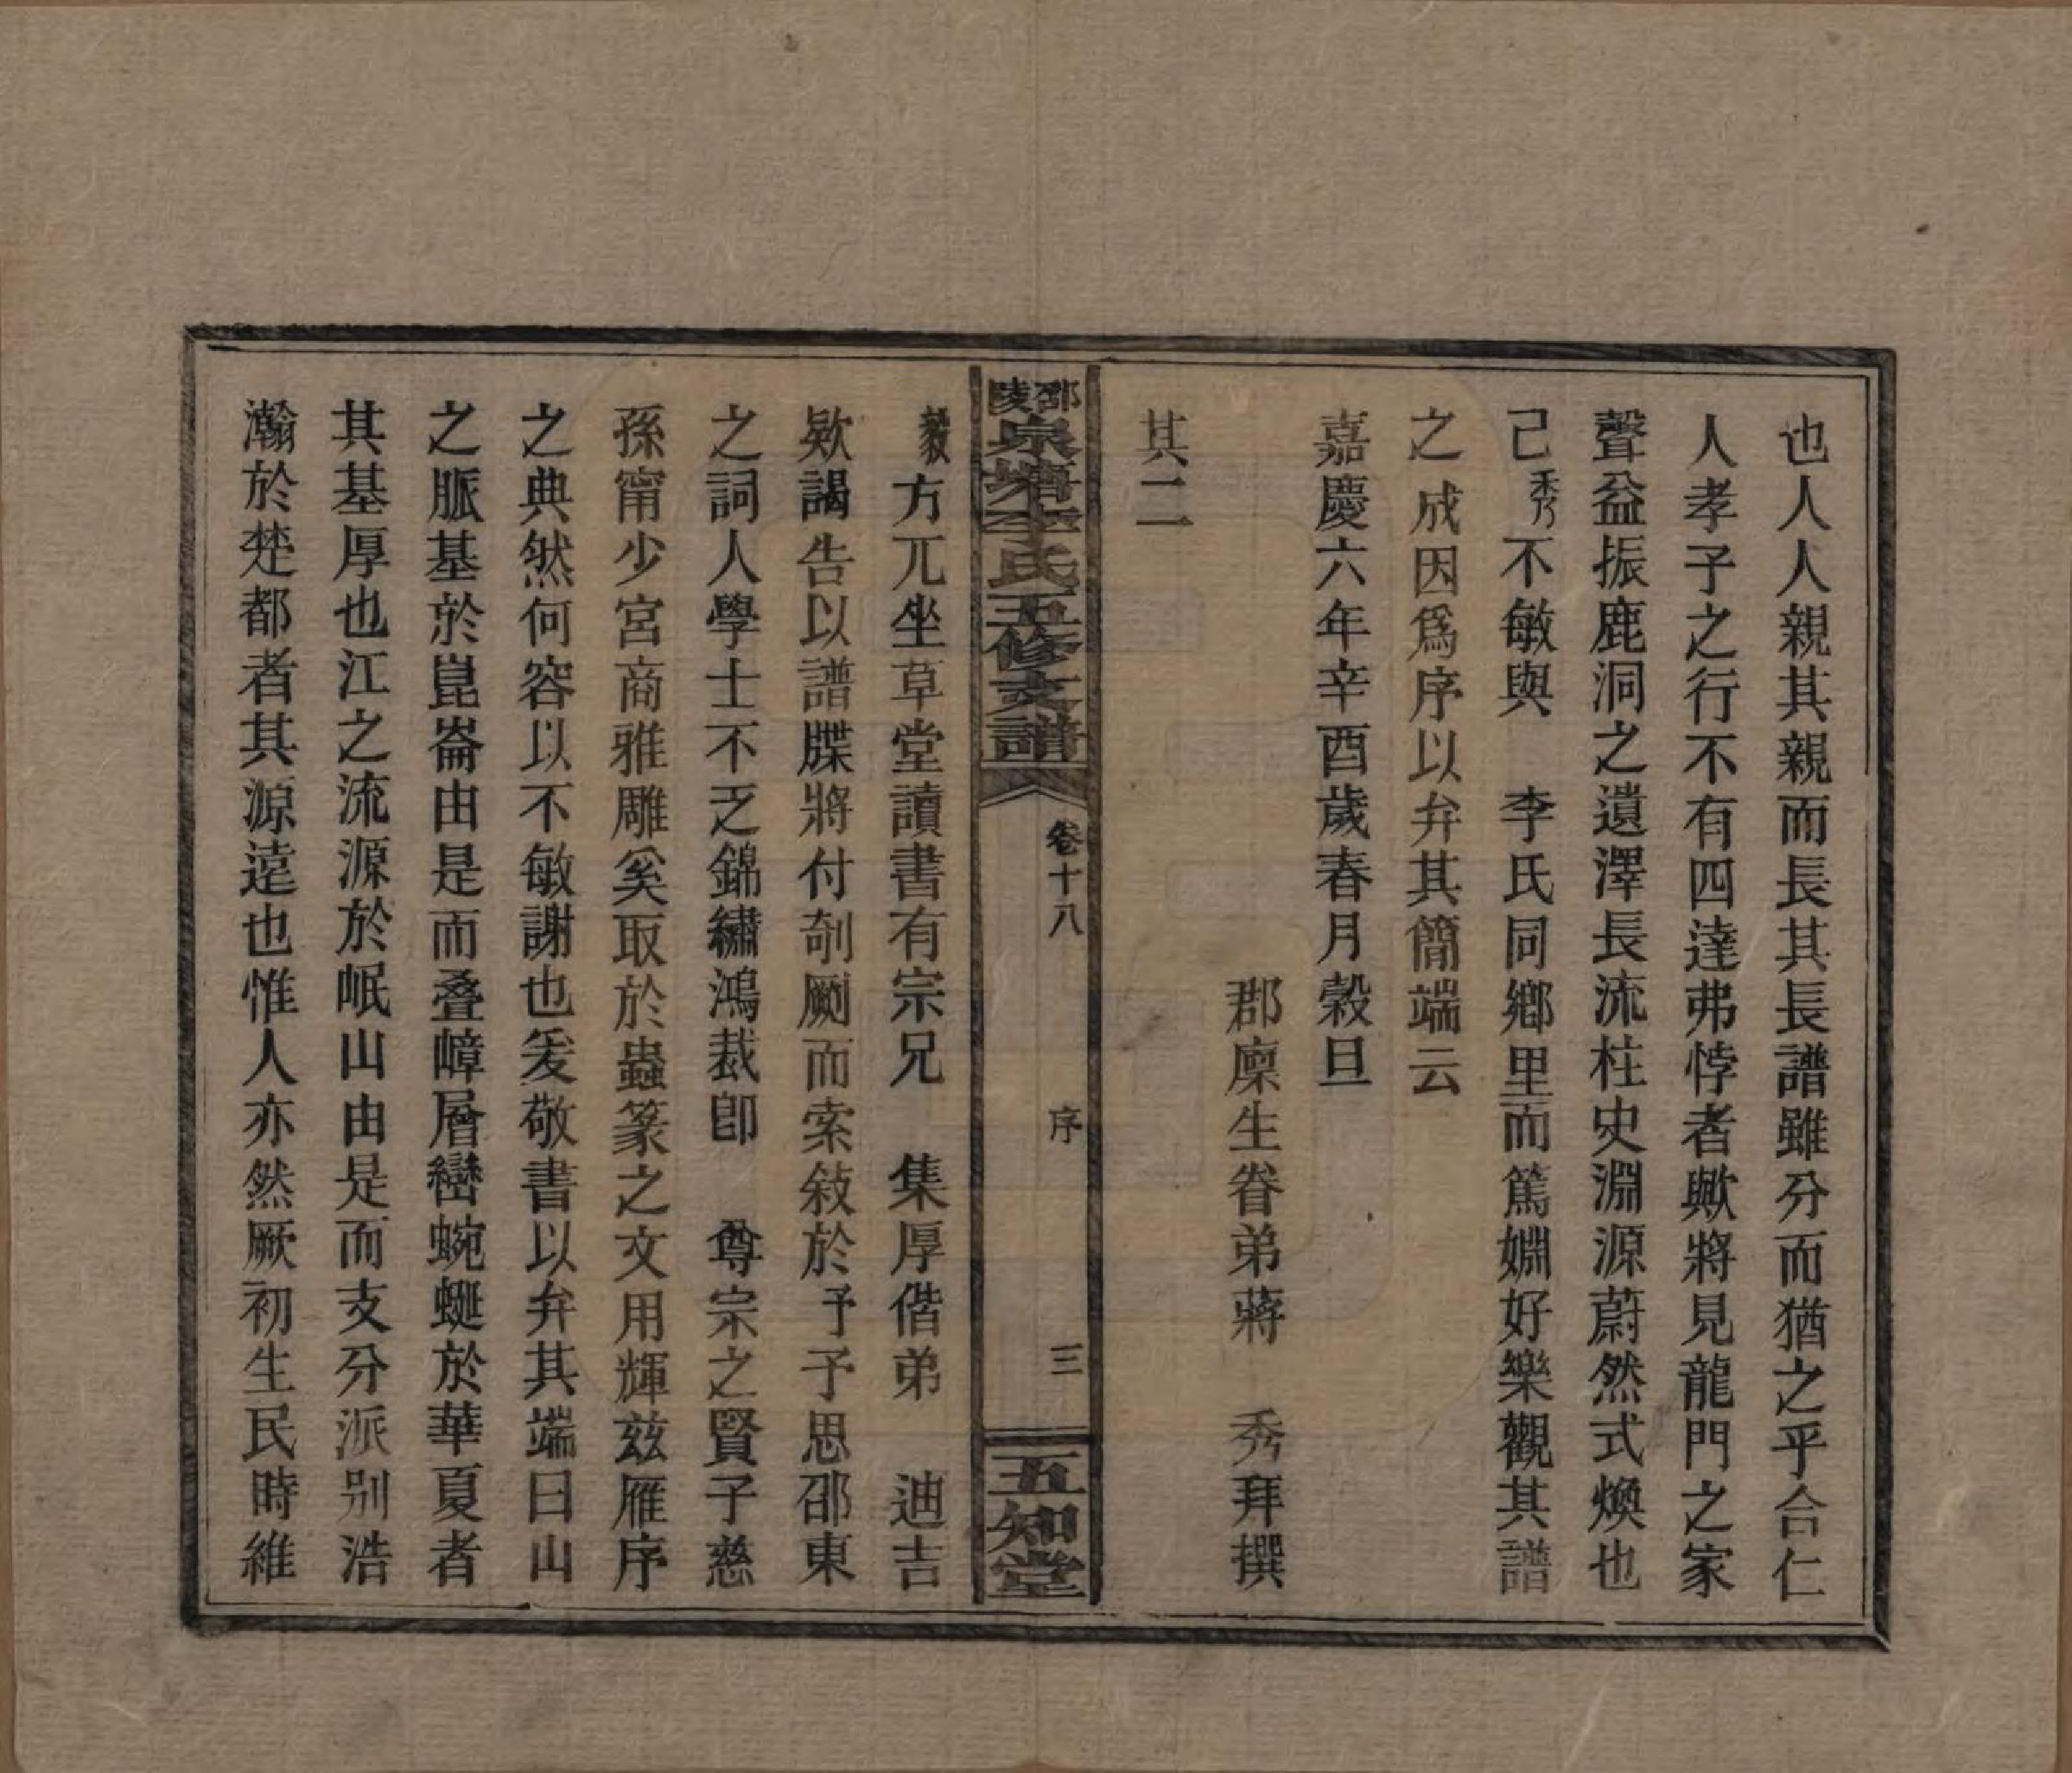 也人人親其親而長其長譜雖分而猶之乎合仁
人孝子之行不有四達弗悖者歟將見龍門之家
聲益振鹿洞之遺澤長流柱史淵源蔚然式煥也
己秀不敏與　李氏同鄉里而篤婣好樂觀其譜
之成因爲序以弁其簡端云
嘉慶六年辛酉歲春月穀旦
郡廩生眷弟蔣　秀拜撰
其二
邵陵泉塘李氏五修支譜
卷十八
序
三
五知堂
毅方兀坐草堂讀書有宗兄　集厚偕弟　迪吉
欵謁告以譜牒將付剞劂而索敍於予予思邵東
之詞人學士不乏錦繡鴻裁卽　尊宗之賢子慈
孫甯少宮商雅雕奚取於蟲篆之文用輝兹雁序
之典然何容以不敏謝也爰敬書以弁其端曰山
之脈基於崑崙由是而叠嶂層巒蜿蜒於華夏者
其基厚也江之流源於岷山由是而支分派别浩
瀚於楚都者其源遠也惟人亦然厥初生民時維